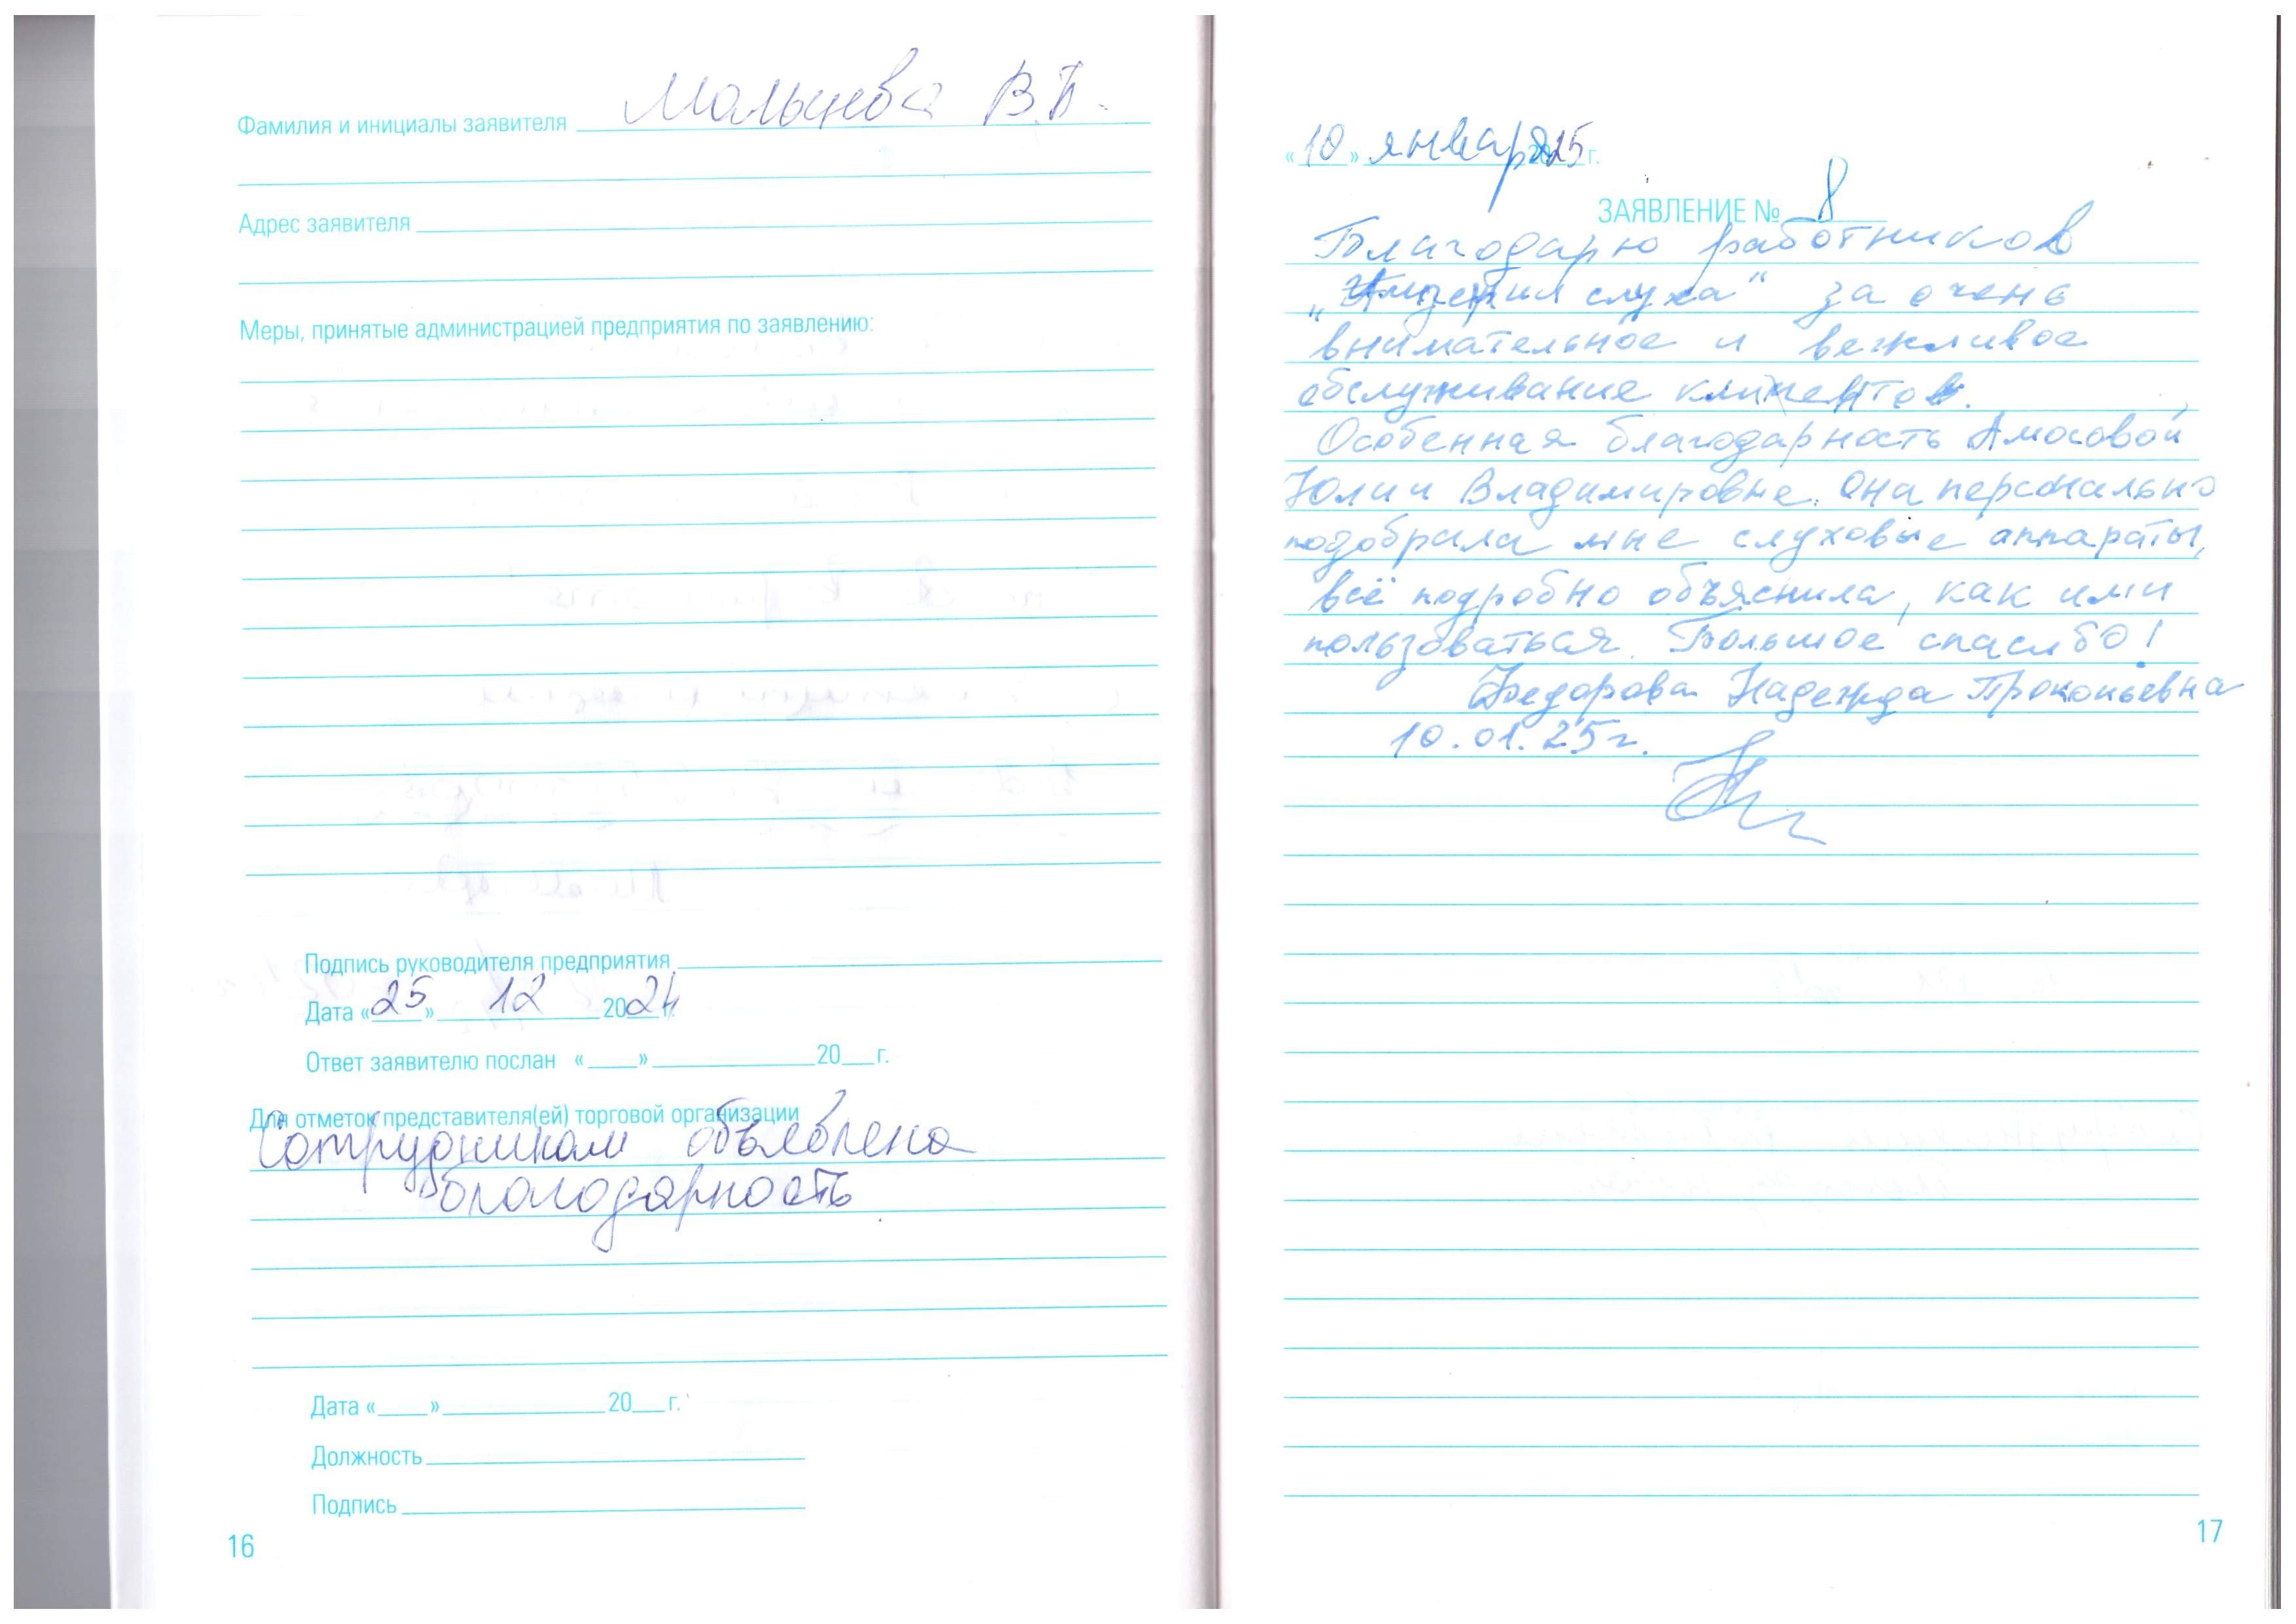 Фамилия и инициалы заявителя Мальцева В.Б.
Адрес заявителя
Меры, принятые администрацией предприятия по заявлению:
Подпись руководителя предприятия
Дата «25» 12 2024 г.
Ответ заявителю послан «    »    20    г.
Для отметок представителя(ей) торговой организации
Сотрудникам объявлена
благодарность
Дата «    »    20    г.
Должность
Подпись
16
«10» января 2025 г.
ЗАЯВЛЕНИЕ № 8
Благодарю работников
„Империя слуха“ за очень
внимательное и вежливое
обслуживание клиентов.
Особенная благодарность Амосовой
Юлии Владимировне. Она персонально
подобрала мне слуховые аппараты,
всё подробно объяснила, как ими
пользоваться. Большое спасибо!
Федорова Надежда Прокопьевна
10.01.25г.
17